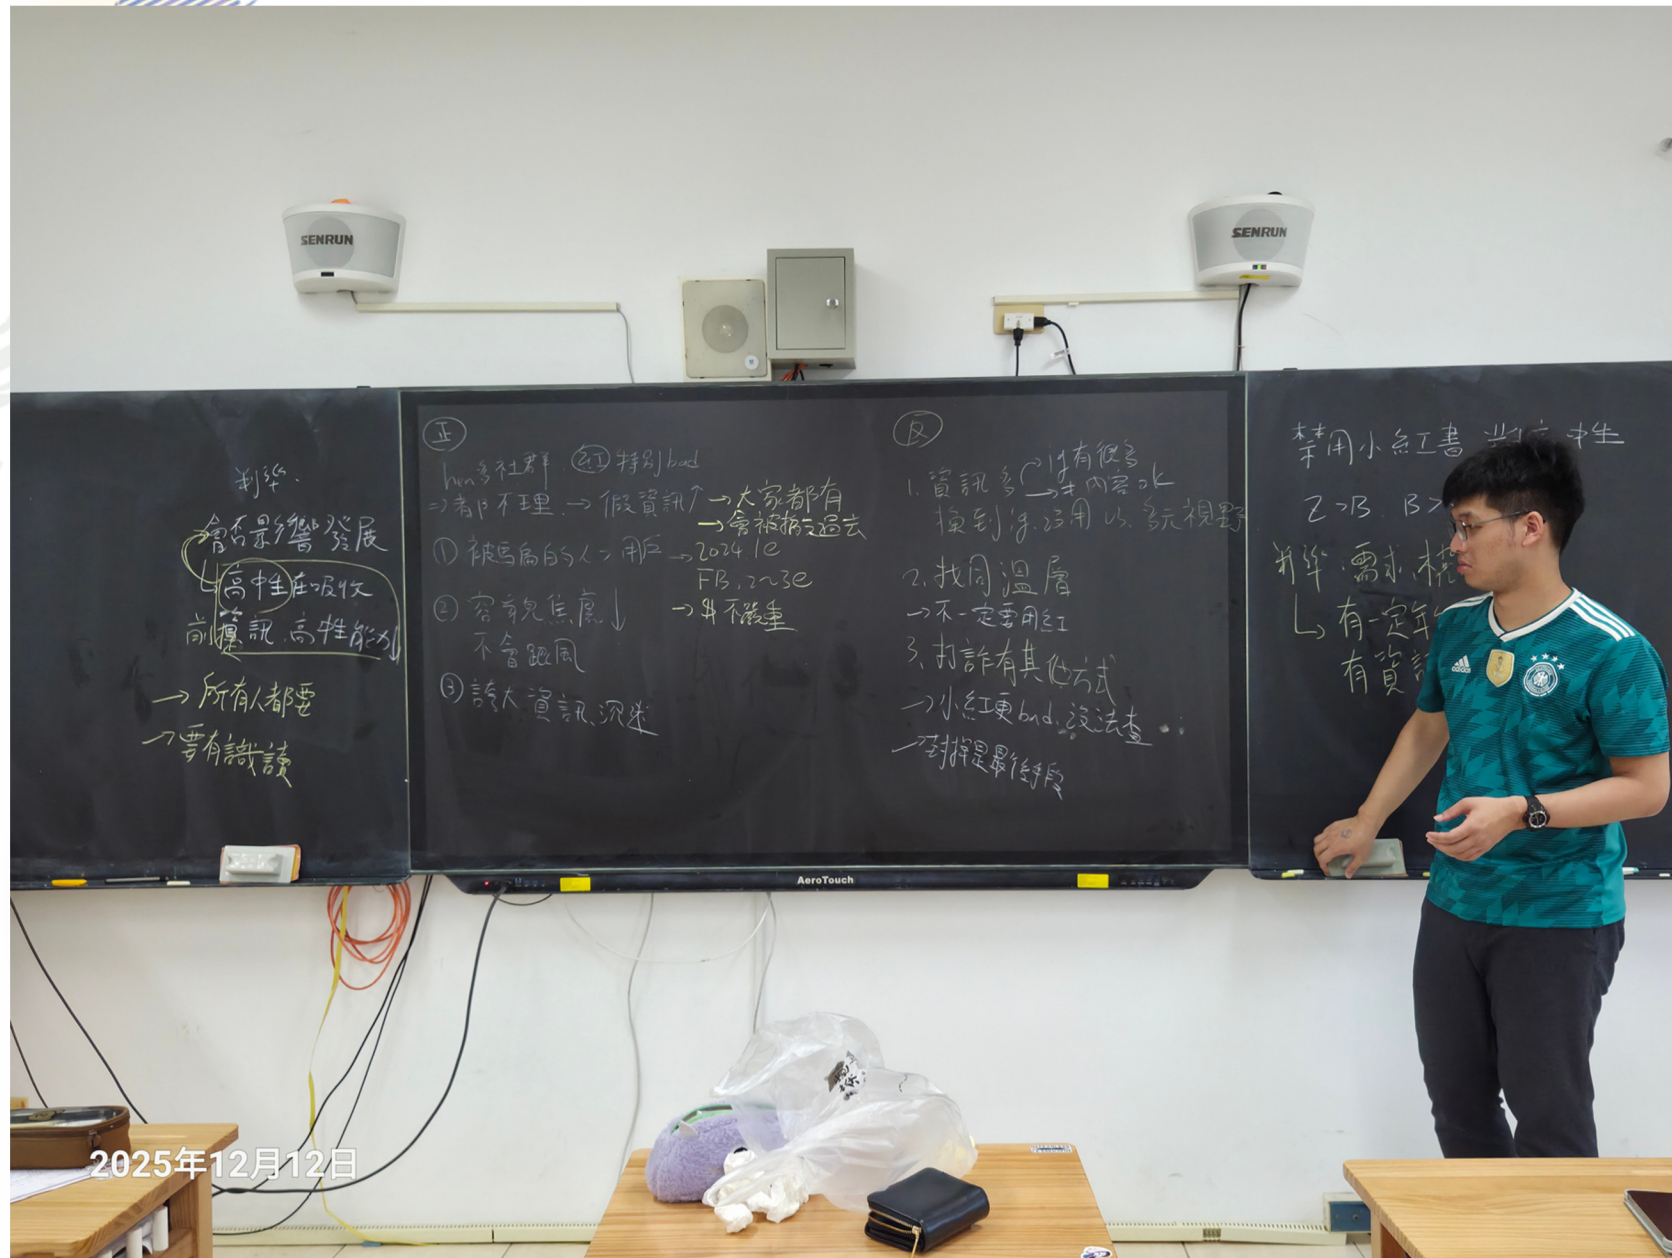 SENRUN
SENRUN
判準.
會否影響發展
高中生在吸收
資訊、高中生能力↓
→ 所有人都要
→ 要有識讀
正
hen多社群. 紅 特別bad
⇒ 都不理 → 假資訊↑ → 大家都有
→ 會被指定過去
① 被騙的人 > 用戶 → 2024.1e
FB.2~3e
② 容貌焦慮↓ → 不嚴重
不會跟風
③ 誇大資訊、沉迷
反
1. 資訊多 → ig有很多
→ 內容ok
換到ig. 活用 vs. 多元視野
2. 找同溫層
→ 不一定要用紅
3. 打詐有其他方式
→ 小紅更bad、沒法查
→ 封掉是最後手段
禁用小紅書 中生
Z→B. B>
判準:需求、
↳ 有一定年
有資訊
adidas
AeroTouch
2025年12月12日